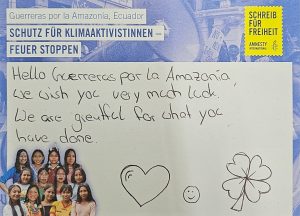 Guerreras por la Amazonía, Ecuador
SCHUTZ FÜR KLIMAAKTIVISTINNEN –
FEUER STOPPEN
SCHREIB
FÜR
FREIHEIT
AMNESTY
INTERNATIONAL
Hello Guerreras por la Amazonía,
we wish you very much luck.
We are greatful for what you
have done.